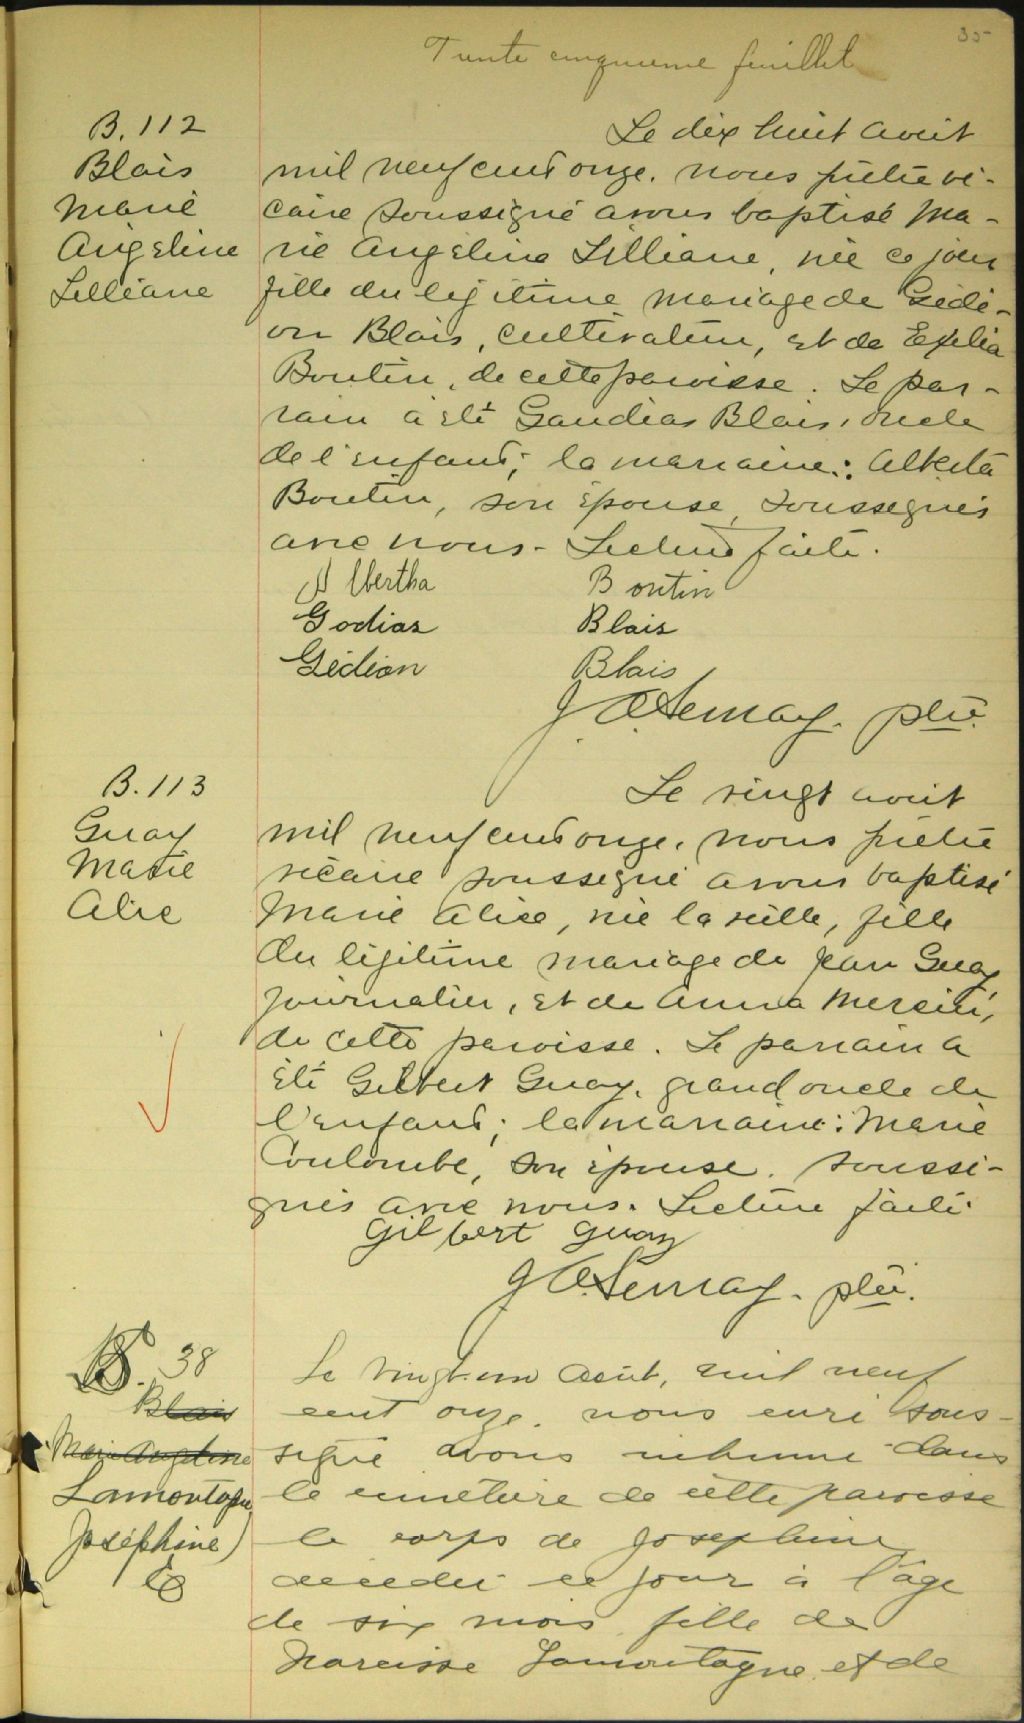 35
Trente cinquieme feuillet
B. 112
Blais
Marie
Angeline
Lilliane
Le dix huit août
mil neuf cent onze, nous prêtre vi-
caire soussigné avons baptisé Ma-
rie Angélina Lilliane, née ce jour
fille du légitime mariage de Gédé-
on Blais, cultivateur, et de Exelia
Boutin, de cette paroisse. Le par-
rain a été Gaudias Blais, oncle
de l'enfant; la marraine: Alberta
Boutin, son épouse, soussignés
avec nous. Lecture faite.
Albertha Boutin
Godias Blais
Gédéon Blais
J. O. Lemay. ptre.
B. 113
Guay
Marie
Alice
Le vingt août
mil neuf cent onze, nous prêtre
vicaire soussigné avons baptisé
Marie Alice, née la veille, fille
du légitime mariage de Jean Guay
journalier, et de Anna Mercier,
de cette paroisse. Le parrain a
été Gilbert Guay, grand oncle de
l'enfant; la marraine: Marie
Coulombe, son épouse. soussi-
gnés avec nous. Lecture faite.
Gilbert Guay
J. O. Lemay. ptre.
S. 38
Blais
Marie Angelina
Lamontagne
Joséphine
Le vingt-un août, mil neuf
cent onze, nous curé sous-
signé avons inhumé dans
le cimetière de cette paroisse
le corps de Josephine
décédée ce jour à l'âge
de six mois fille de
Narcisse Lamontagne et de